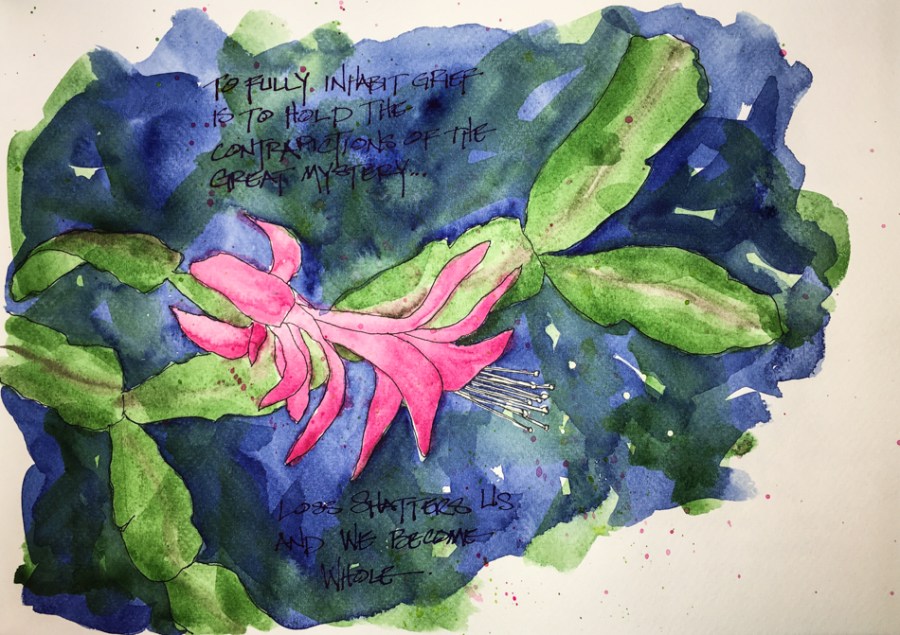 TO FULLY INHABIT GRIEF
IS TO HOLD THE
CONTRADICTIONS OF THE
GREAT MYSTERY...
LOSS SHATTERS US
AND WE BECOME
WHOLE—.